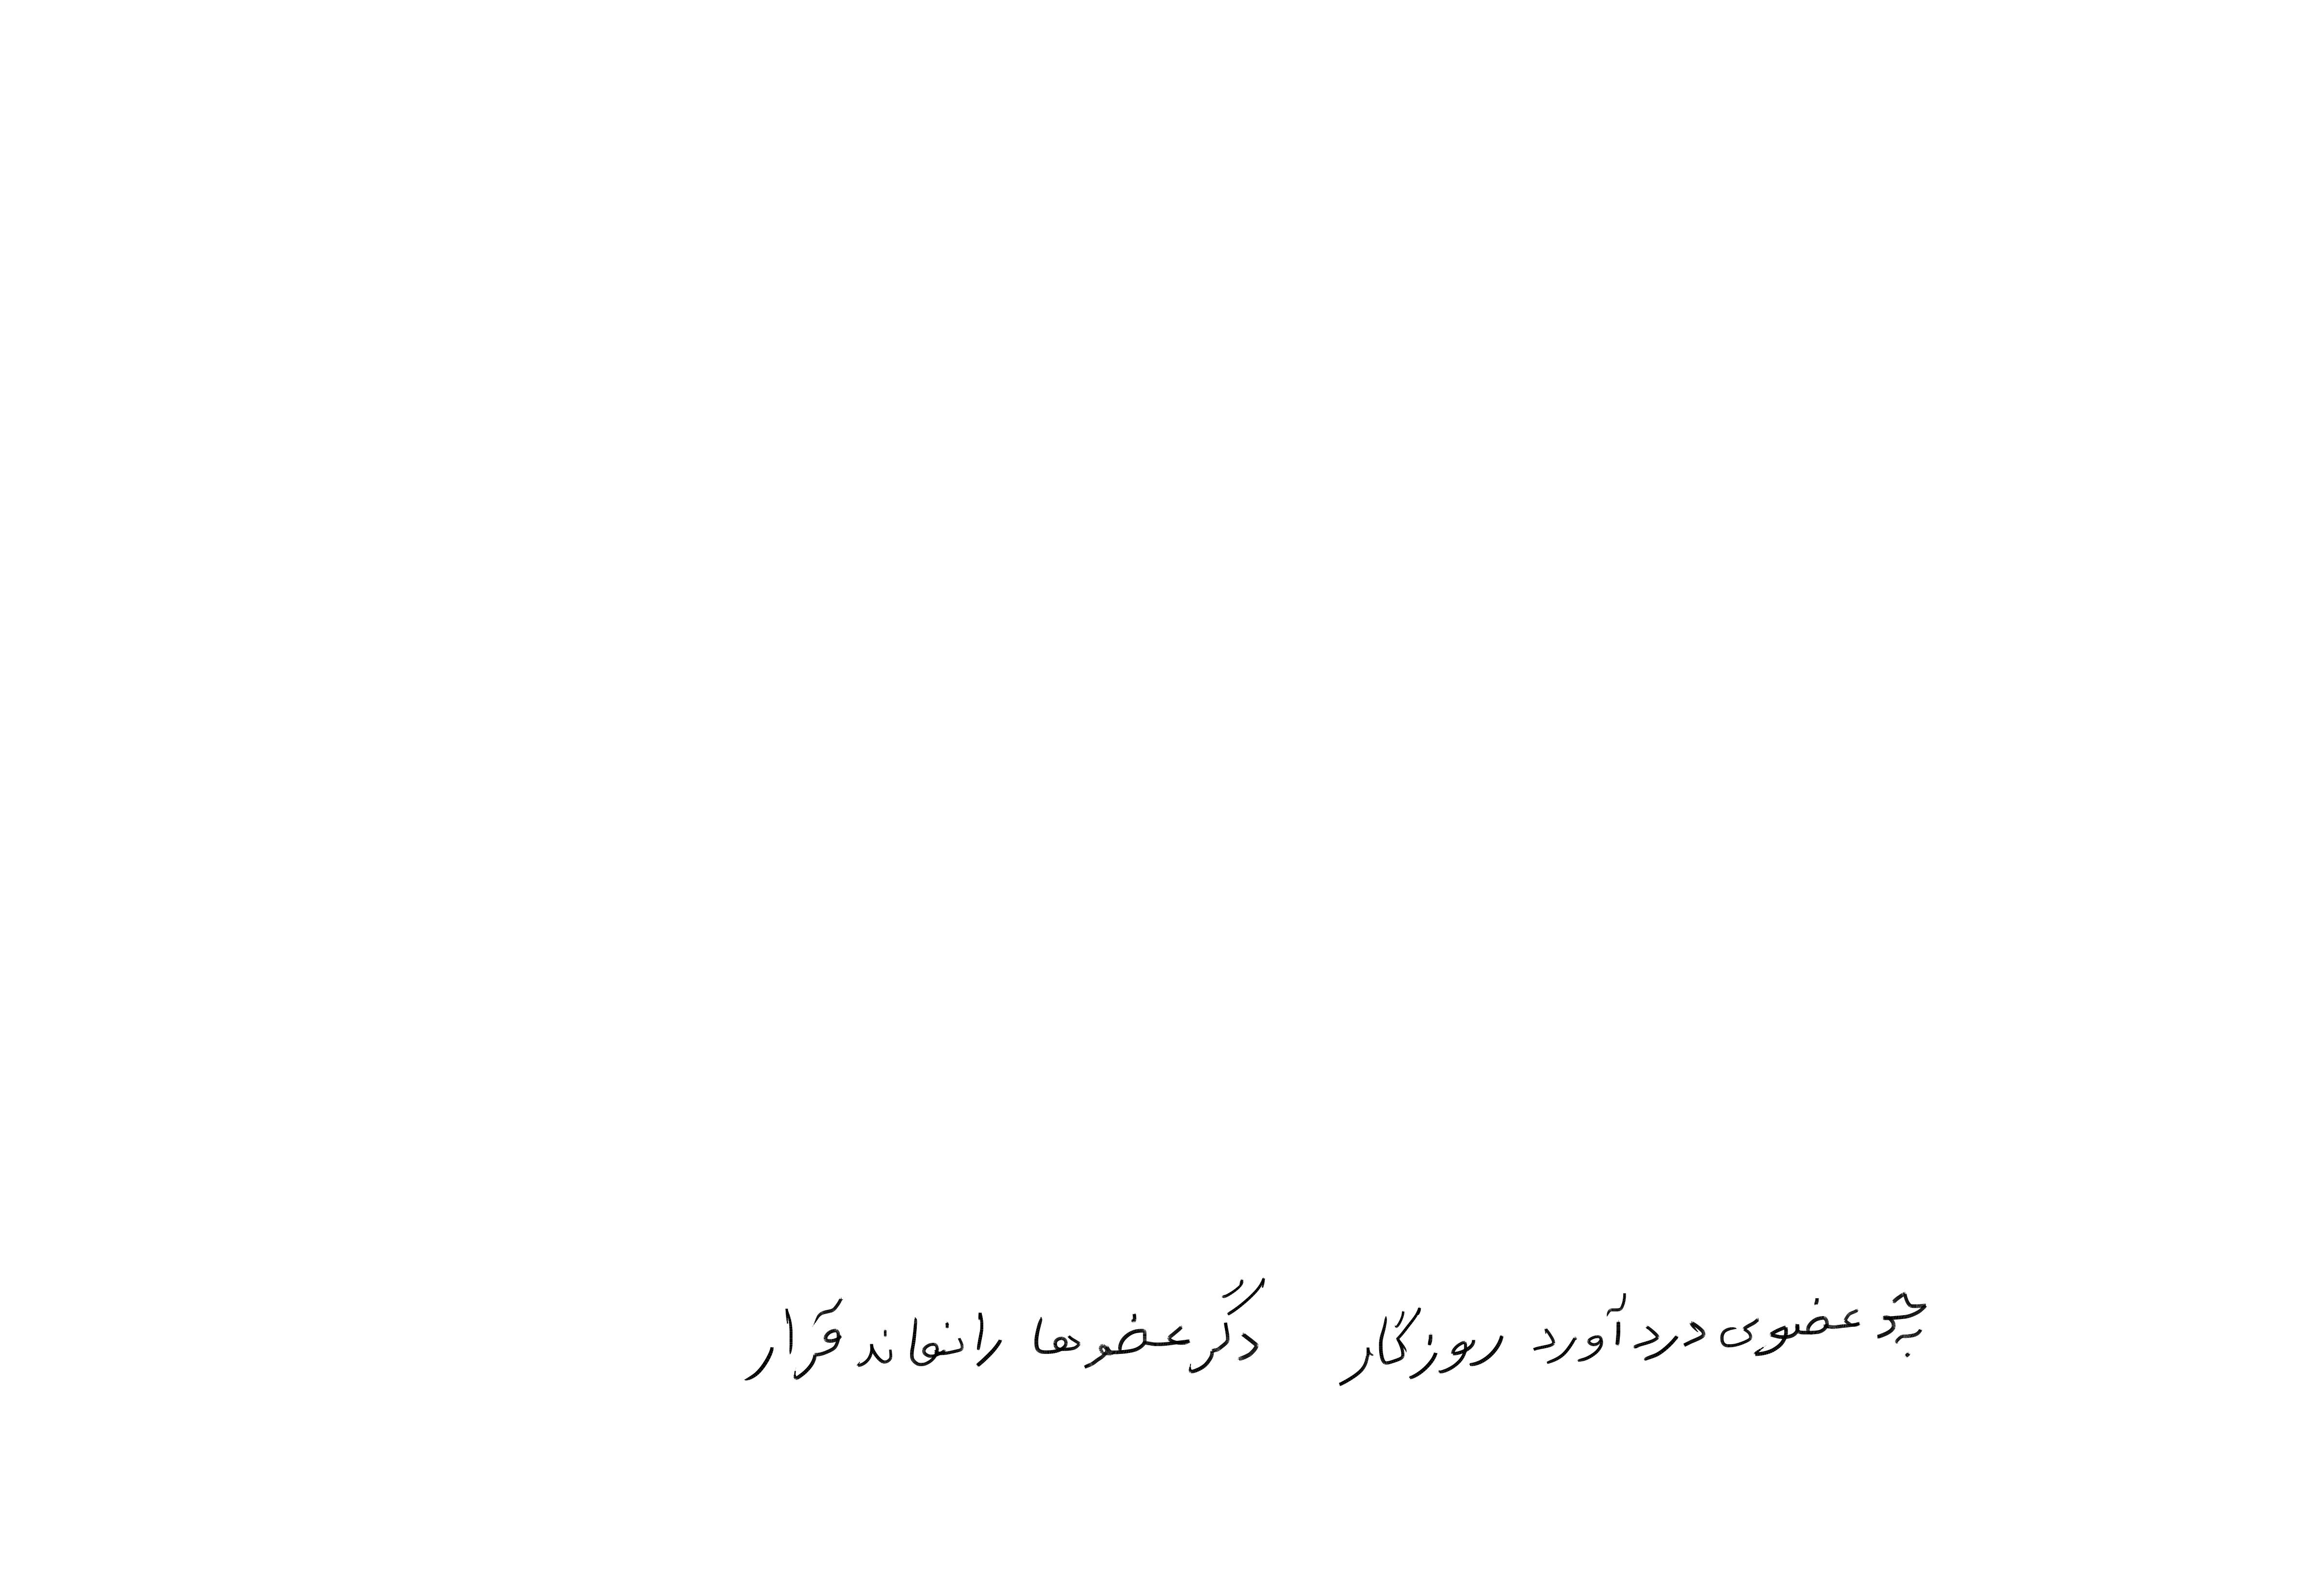 چو عضوی بدرد آورد روزگار دگر عضوها را نماند قرار